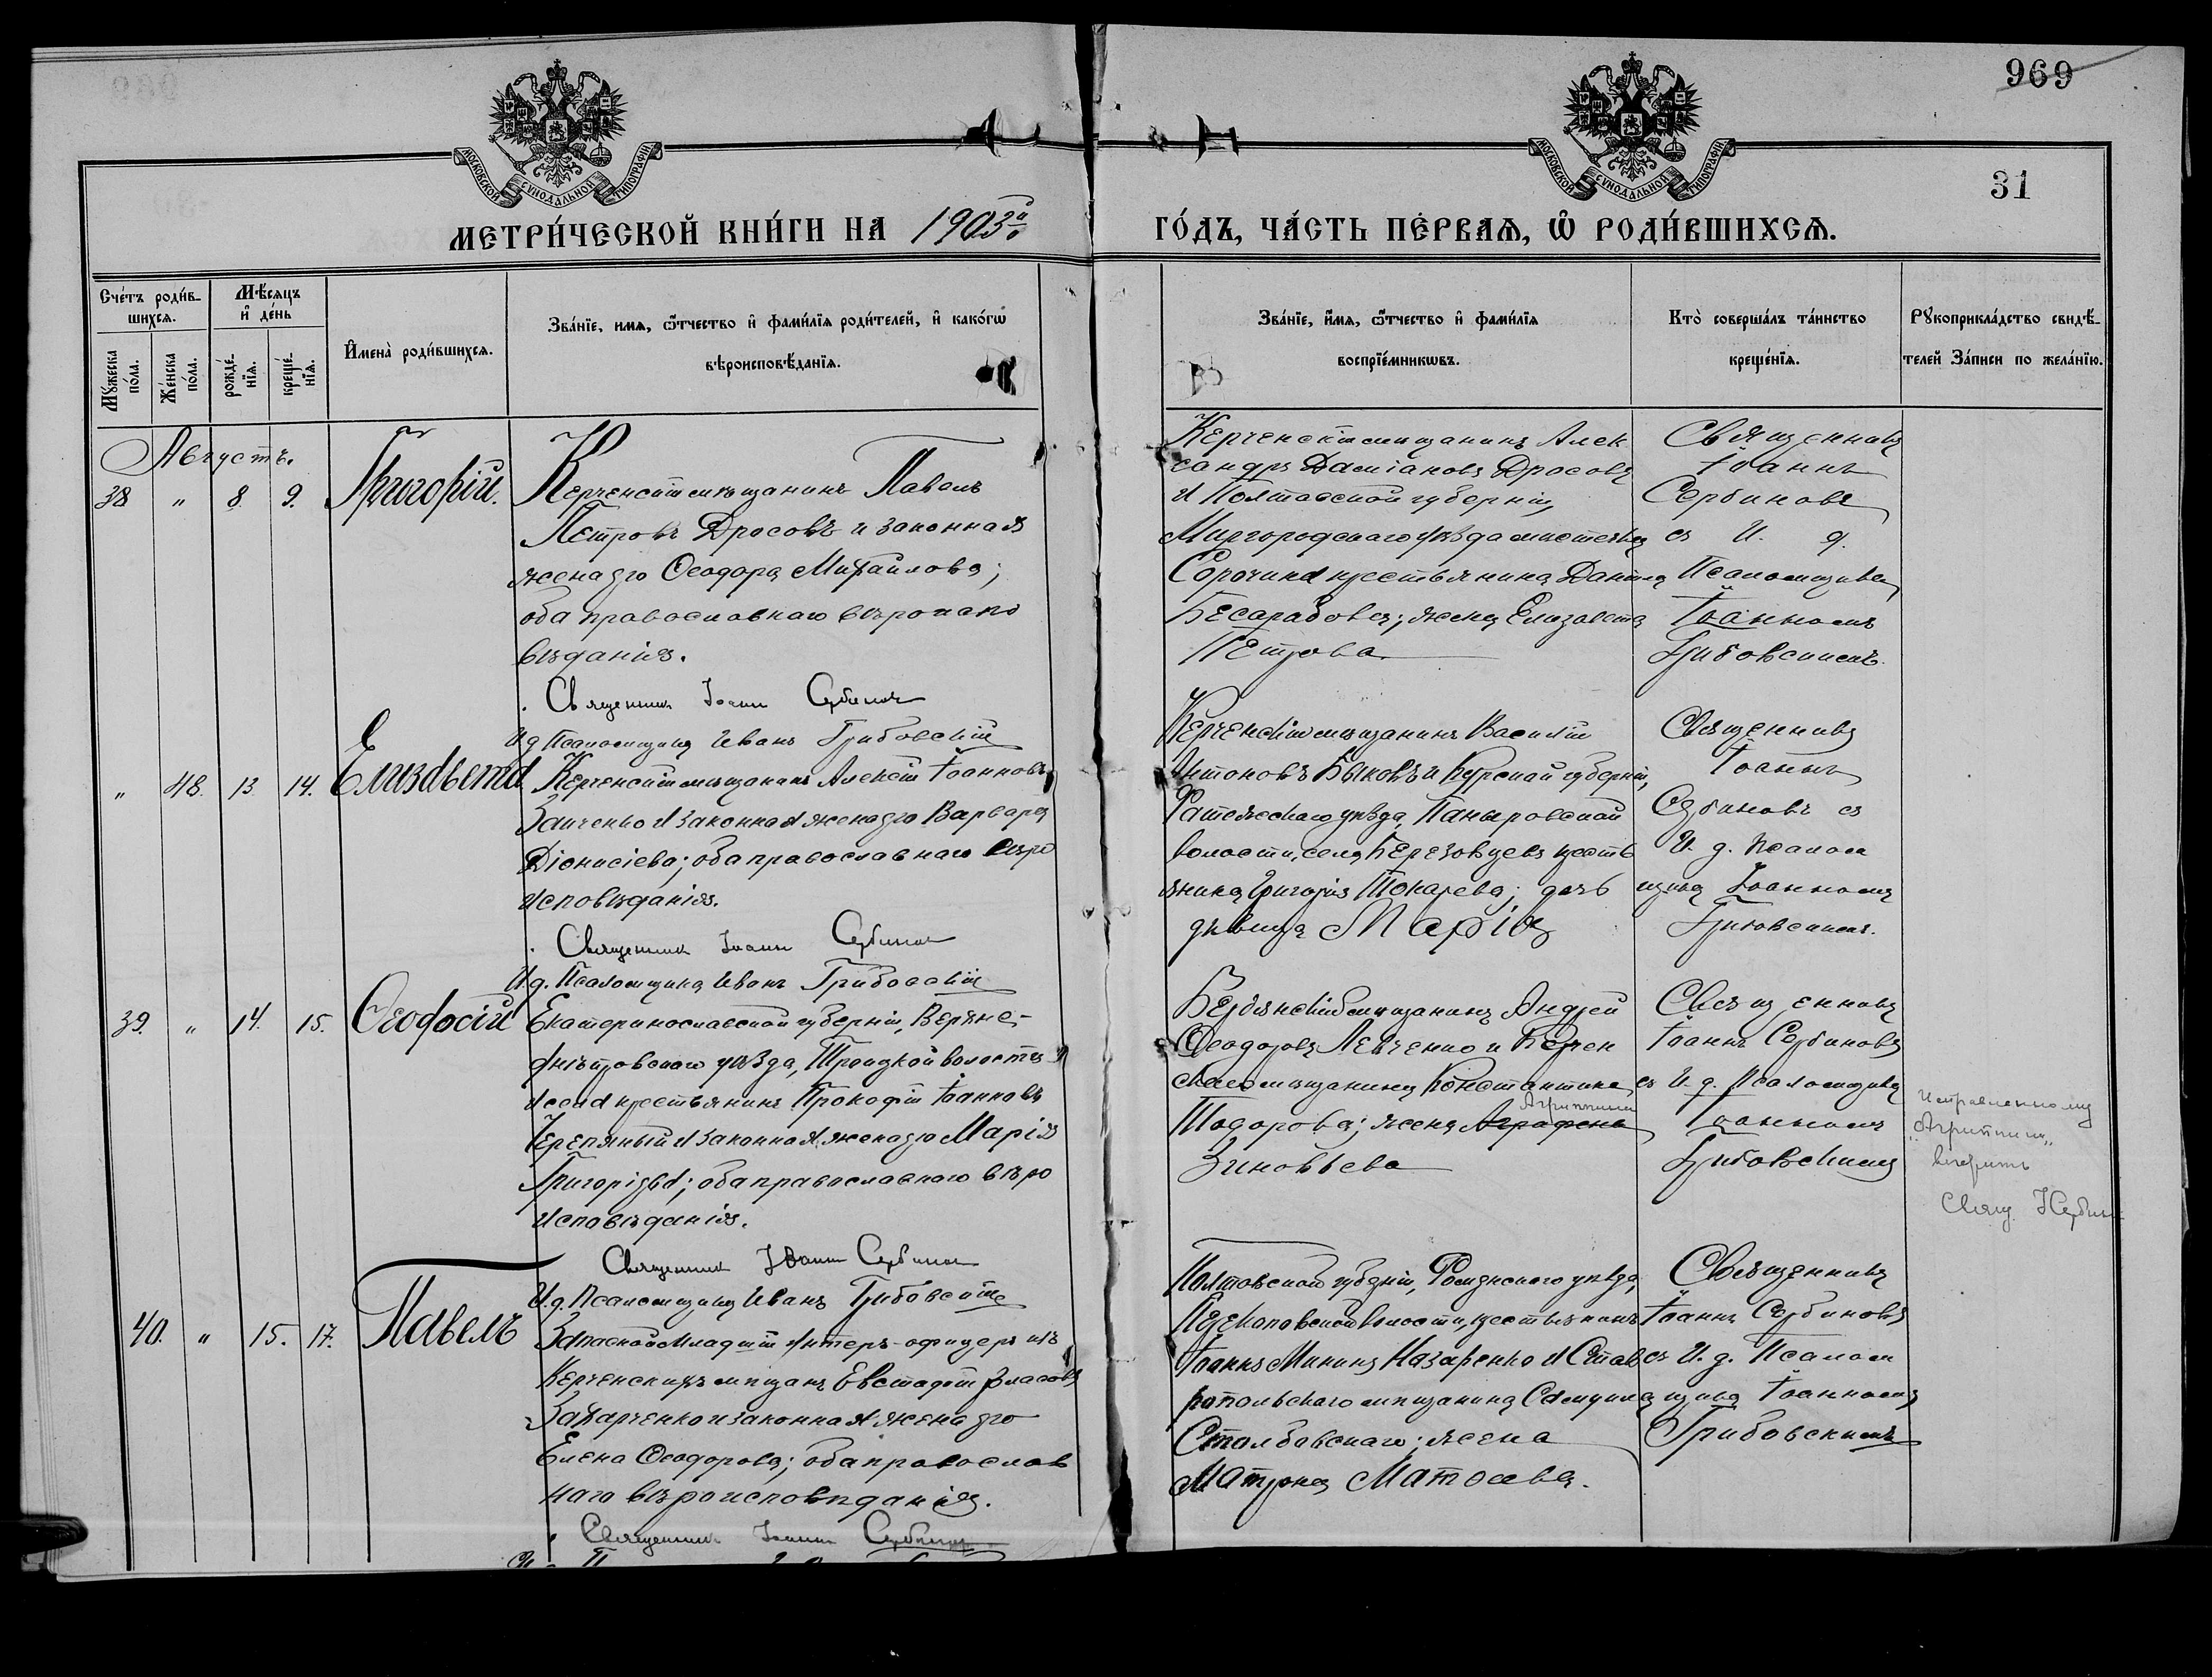 969
31
МОСКОВСКОЙ СУНОДАЛЬНОЙ ТИПОГРАФІИ
МОСКОВСКОЙ СУНОДАЛЬНОЙ ТИПОГРАФІИ
МЕТРИ́ЧЕСКОЙ КНИ́ГИ НА 1903й
ГО́ДЪ, ЧА́СТЬ ПЕ́РВАѦ, Ѡ҆ РОДИ́ВШИХСѦ.
Сче́тъ роди́в-
шихсѧ.
Мѣ́сѧцъ
и҆ де́нь
Мꙋ́жеска
по́ла.
Же́нска
по́ла.
рожде́-
нїѧ.
креще́-
нїѧ.
И҆мена̀ роди́вшихсѧ.
Зва́нїе, имѧ, ѻ҆́тчество и҆ фами́лїѧ роди́телей, и҆ како́гѡ
вѣроисповѣ́данїѧ.
Зва́нїе, и҆́мѧ, ѻ҆́тчество и҆ фами́лїѧ
воспрїе́мникѡвъ.
Кто̀ соверша́лъ та́инство
креще́нїѧ.
Рꙋкоприкла́дство свидѣ́-
телей За́писи по жела́нїю.
Августъ.
38 " 8 9. Григорій.
Керченскій мѣщанинъ Павелъ
Петровъ Дросовъ и законная
жена его Ѳеодора Михайлова;
оба православнаго вѣроиспо
вѣданія.
Священникъ Іоаннъ Сербиновъ
И. д. Псаломщика Иванъ Грибовскій
Керченскій мѣщанинъ Алек
сандръ Даміановъ Дросовъ
и Полтавской губерніи,
Миргородскаго уѣзда мѣстечка
Сорочинъ крестьянина Данила
Бесарабова; жена Елизавета
Петрова
Священникъ
Іоаннъ
Сербиновъ
съ И. д.
Псаломщика
Іоанномъ
Грибовскимъ.
" 48. 13 14. Елизавета
Керченскій мѣщанинъ Алексѣй Іоанновъ
Заиченко и законная жена его Варвара
Діонисіева; оба православнаго вѣро
исповѣданія.
Священникъ Іоаннъ Сербиновъ
И. д. Псаломщика Иванъ Грибовскій
Керченскій мѣщанинъ Василій
Антоновъ Быковъ и Курской губерніи,
Фатежскаго уѣзда, Паныровской
волости, села Березовцевъ кресть
янина Григорія Токарева; дочь
дѣвица Марія
Священникъ
Іоаннъ
Сербиновъ съ
И. д. Псалом
щика Іоанномъ
Грибовскимъ.
39. " 14. 15. Ѳеодосій
Екатеринославской губерніи, Верхне-
днѣпровскаго уѣзда, Троицкой волости и
села крестьянинъ Прокофій Іоанновъ
Черепяный и законная жена его Марія
Григорьева; оба православнаго вѣро
исповѣданія.
Священникъ Іоаннъ Сербиновъ
И. д. Псаломщика Иванъ Грибовскій
Бердянскій мѣщанинъ Андрей
Ѳеодоровъ Левченко и Керчен
скаго мѣщанина Константина
Агриппина
Тодорова; жена Аграфена
Зиновьева
Священникъ
Іоаннъ Сербиновъ
съ И. д. Псаломщика
Іоанномъ
Грибовскимъ
Исправленному
"Агриппина"
вѣрить
Свящ. І Сербин
40. " 15. 17. Павелъ
Запасной младшій унтеръ-офицеръ изъ
Керченскихъ мѣщанъ Евстафій Власовъ
Захарченко и законная жена его
Елена Ѳеодорова; оба православ
наго вѣроисповѣданія.
Священникъ Іоаннъ Сербиновъ
Полтавской губерніи, Роменскаго уѣзда,
волости, крестьянинъ
Іоаннъ Мининъ Назаренко и Став
ропольскаго мѣщанина Самуила
Столбовскаго; жена
Матрона Матѳеева.
Священникъ
Іоаннъ Сербиновъ
съ И. д. Псалом
щика Іоанномъ
Грибовскимъ